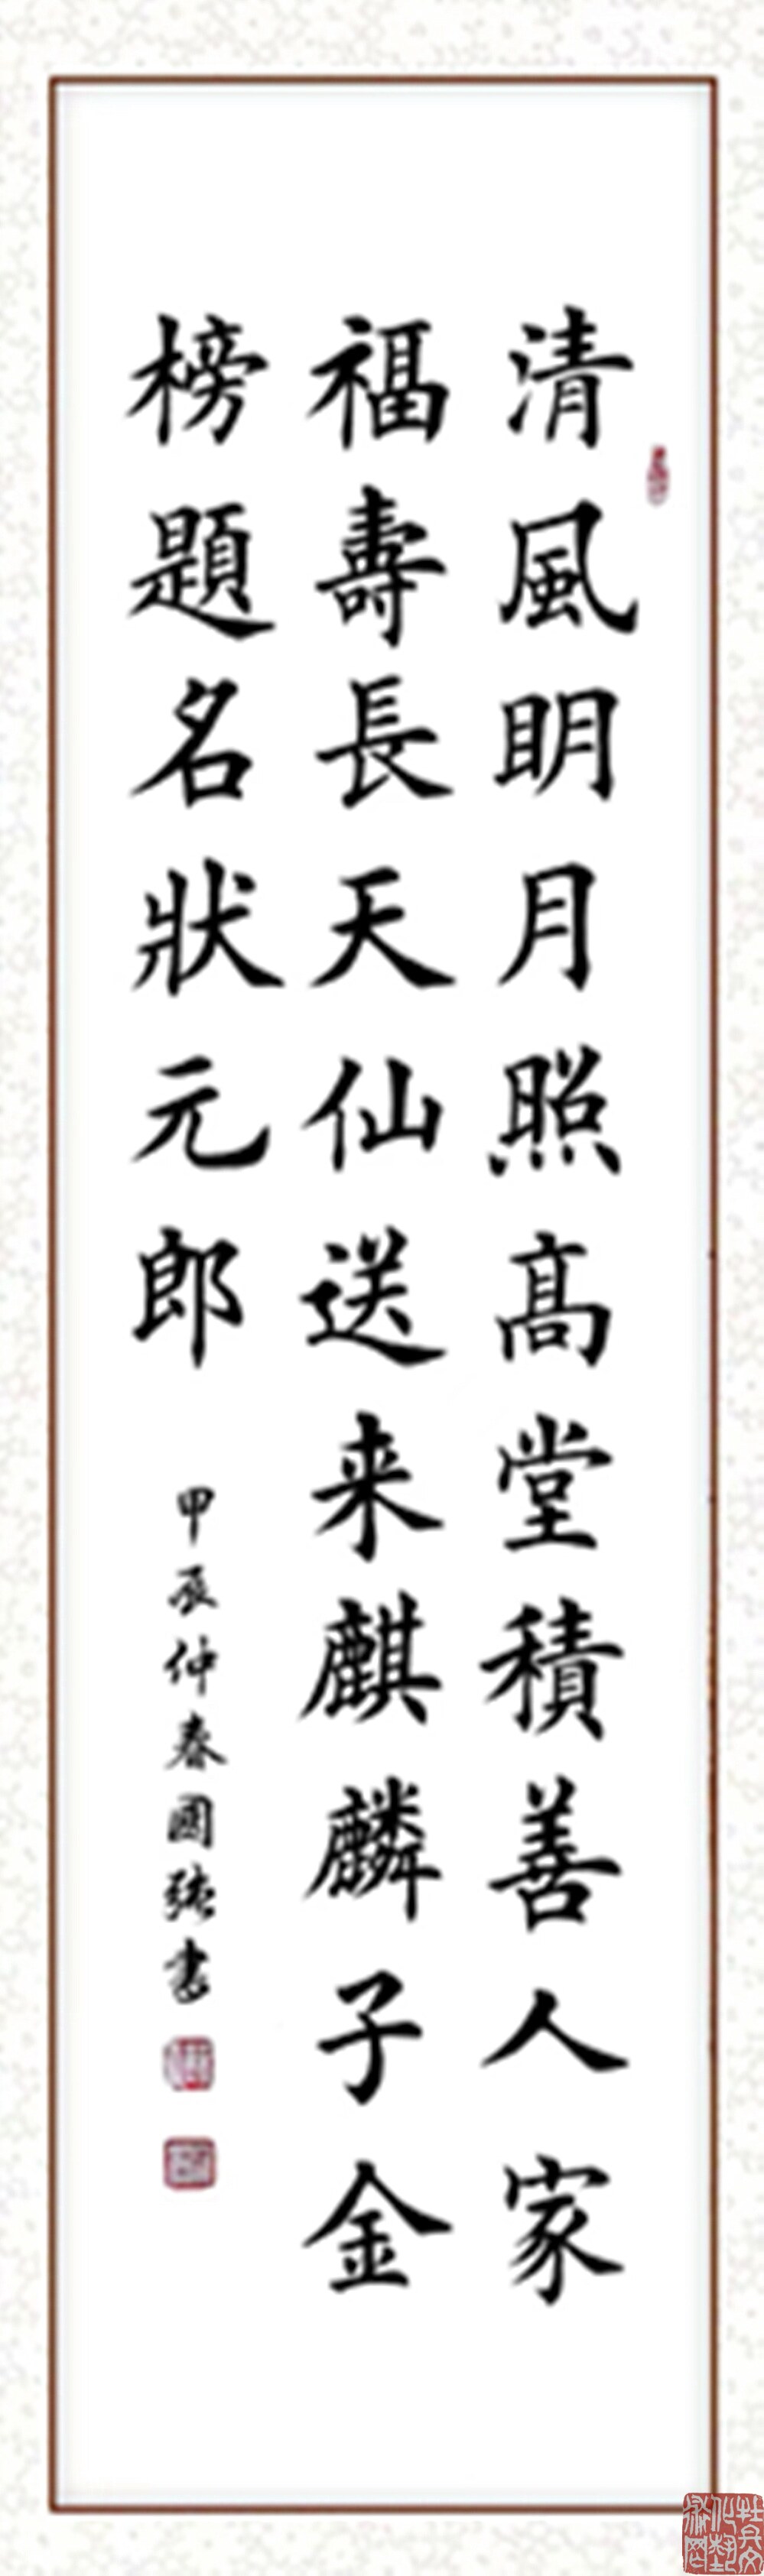 清風明月照高堂積善人家
福壽長天仙送来麒麟子金
榜題名狀元郎
甲辰仲春國強書